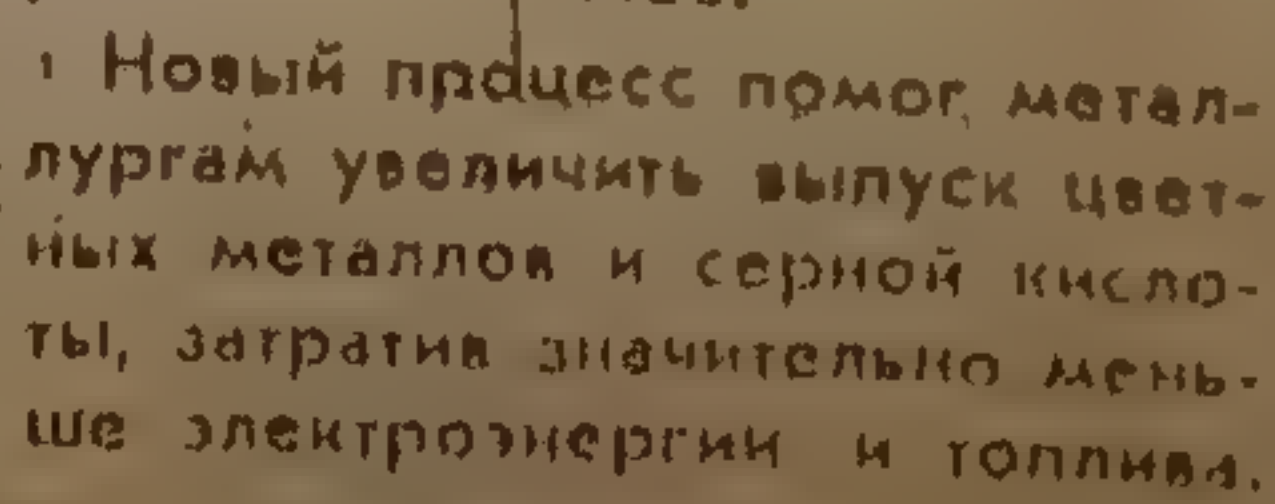 Новый процесс помог метал-
лургам увеличить выпуск цвет-
ных металлов и серной кисло-
ты, затратив значительно мень-
ше электроэнергии и топлива.